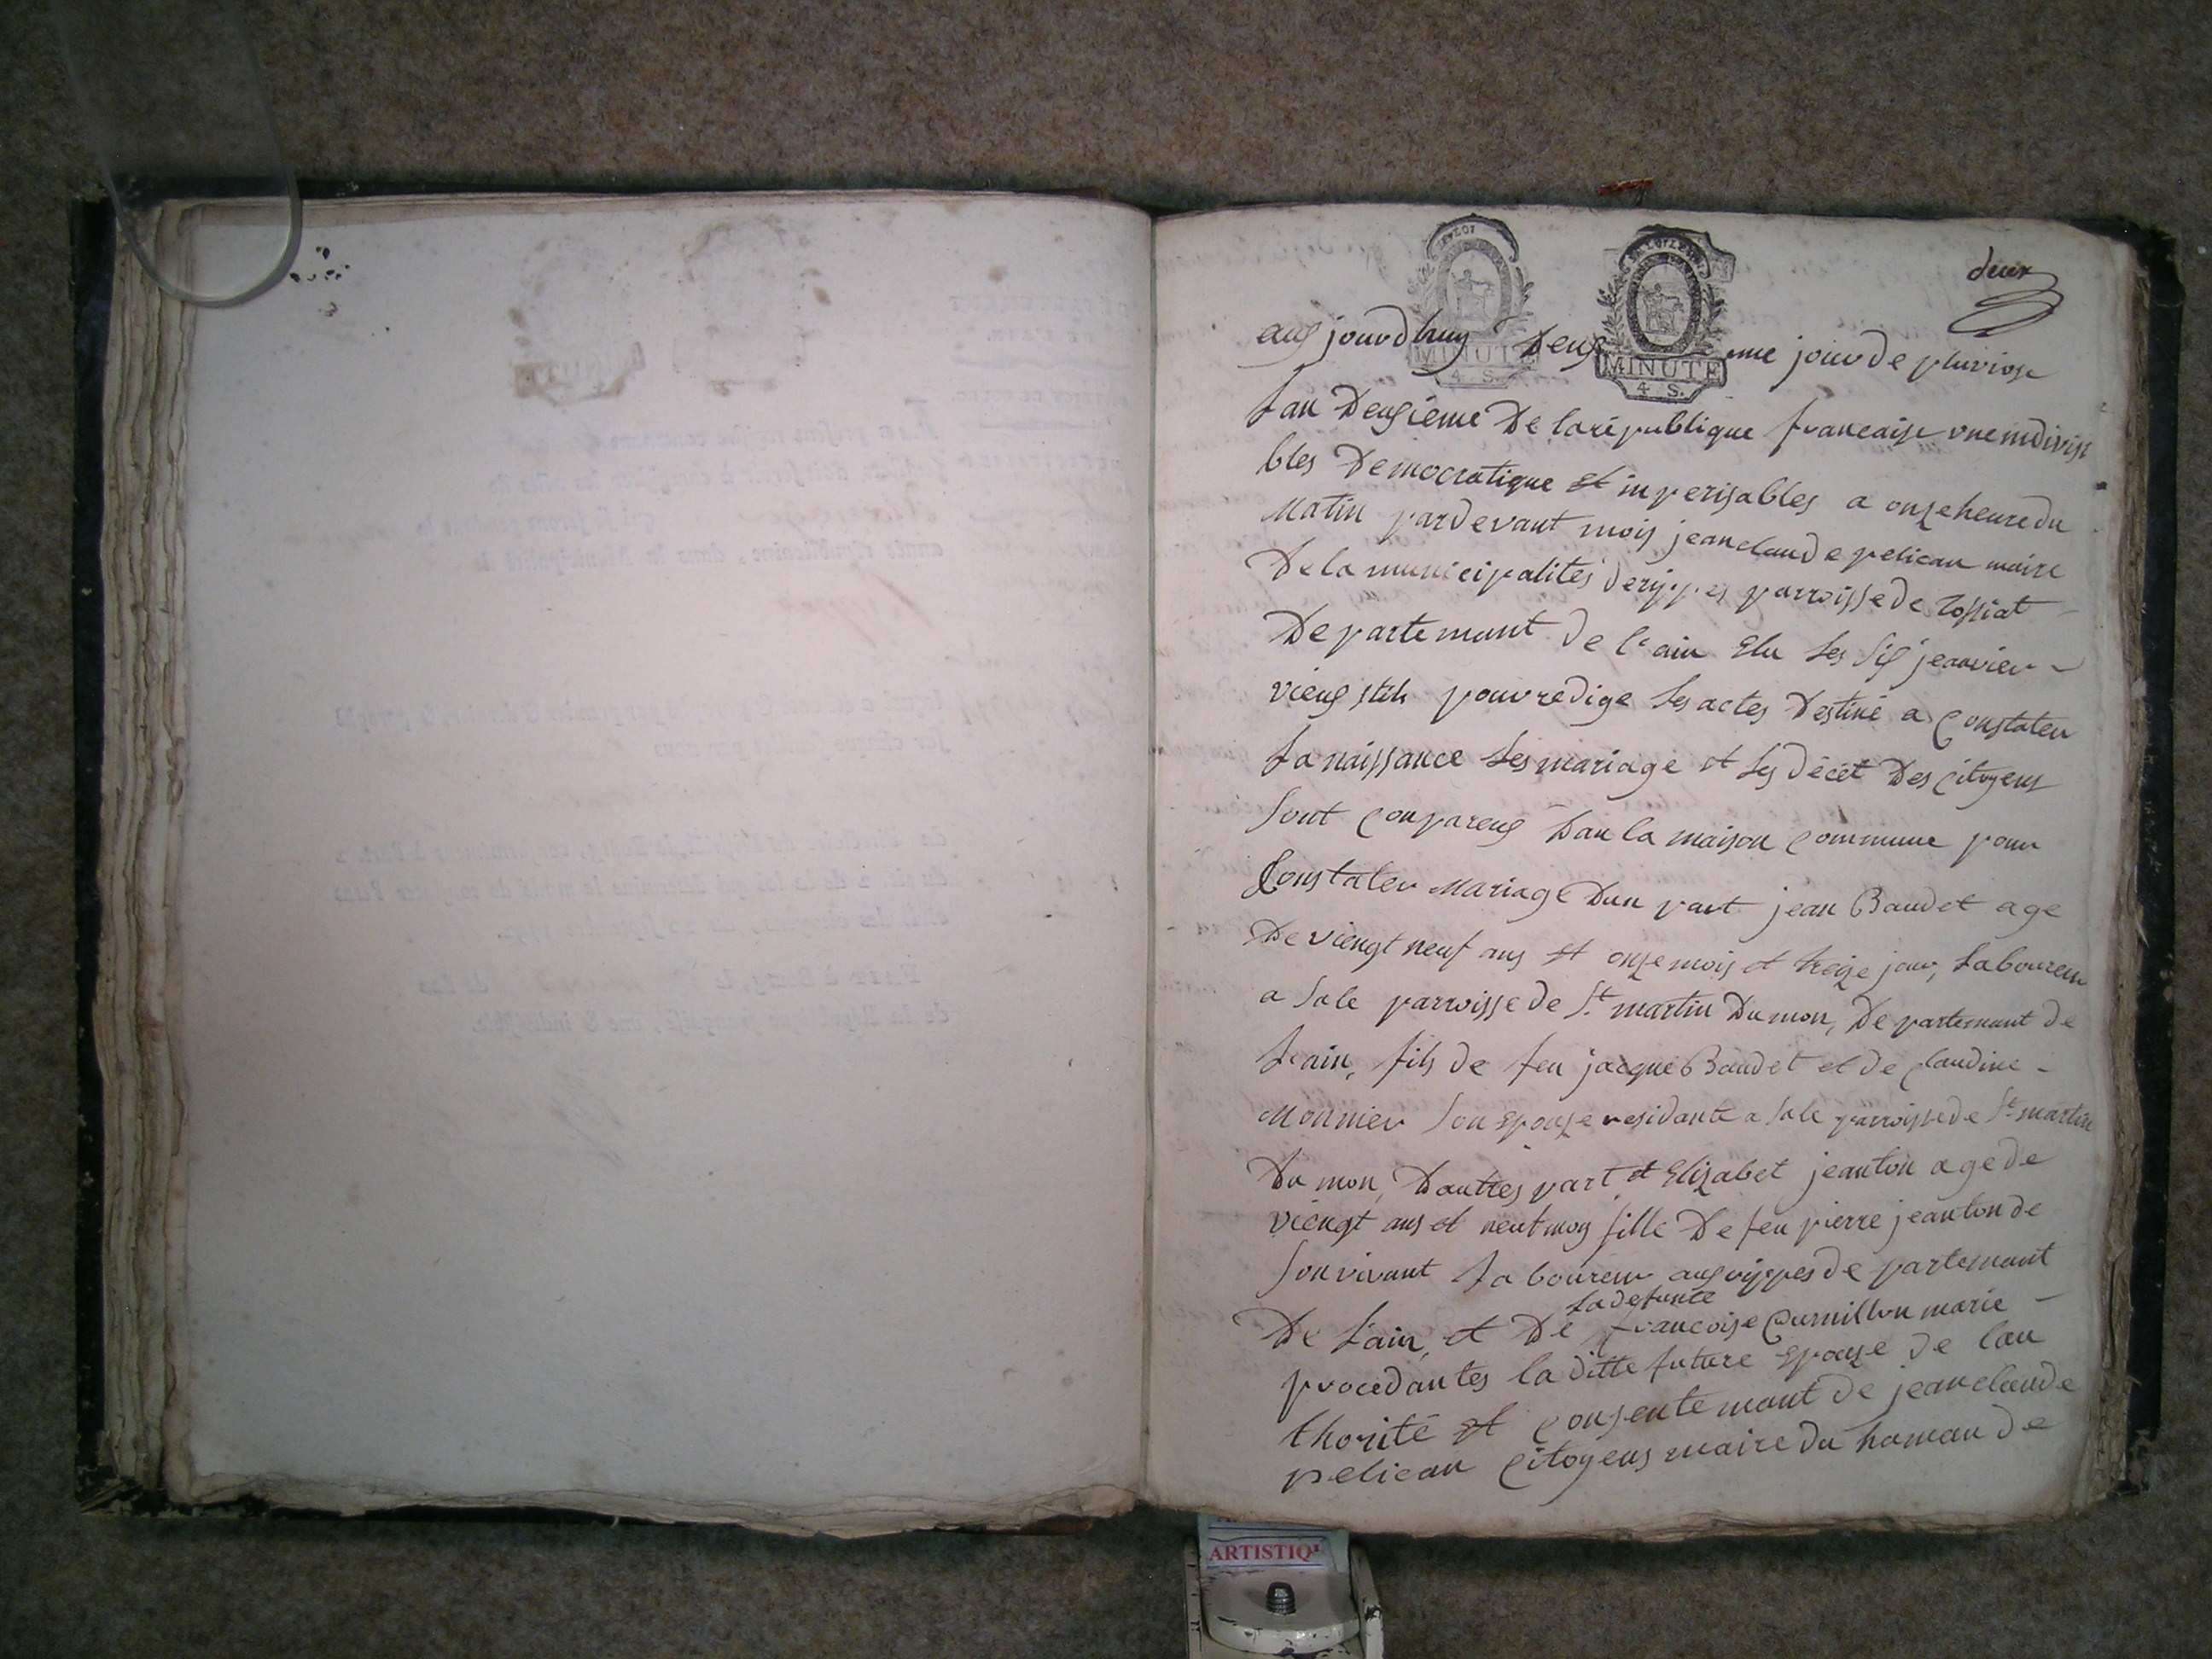 deux
aux jourdhuy Deux eme jour de pluviose
Lan Deuxieme De la republique francaise une indivisi
bles Democratique et imperisables a onze heure du
Matin pardevant mois jean claude pelican maire
De la municipalités derippes parroisse de Tossiat
Departemant de l'ain Elu Les Six jeanvier
pour redige Les actes Destiné a Constater
La naissance Les mariage et Les décèt Des Citoyens
Sont Conpareus Dan la maison Commune pour
Constater Mariage Dun part jean Baudet age
De viengt neuf ans et onze mois et treize jour, Laboureur
a Sale parroisse de St martin Du mon, De partemant de
Lain, fils de feu jacque Baudet et de Claudine
Monnier Son Epouze residante a Sale parroisse de St martin
Du mon, Dauttes part et Elizabet jeanton age de
viengt ans et neuf moy fille De feu pierre jeanton de
Son vivant Laboureur aux rippes de partemant
De Lain, et De La defunte francoise Curnillon marie
procedantes la ditte future Epouze de lau
thorité et Consentemant de jean claude
pelican Citoyens maire du hameau de
MINUTE
4 S.
MINUTE
4. S.
ARTISTIQ